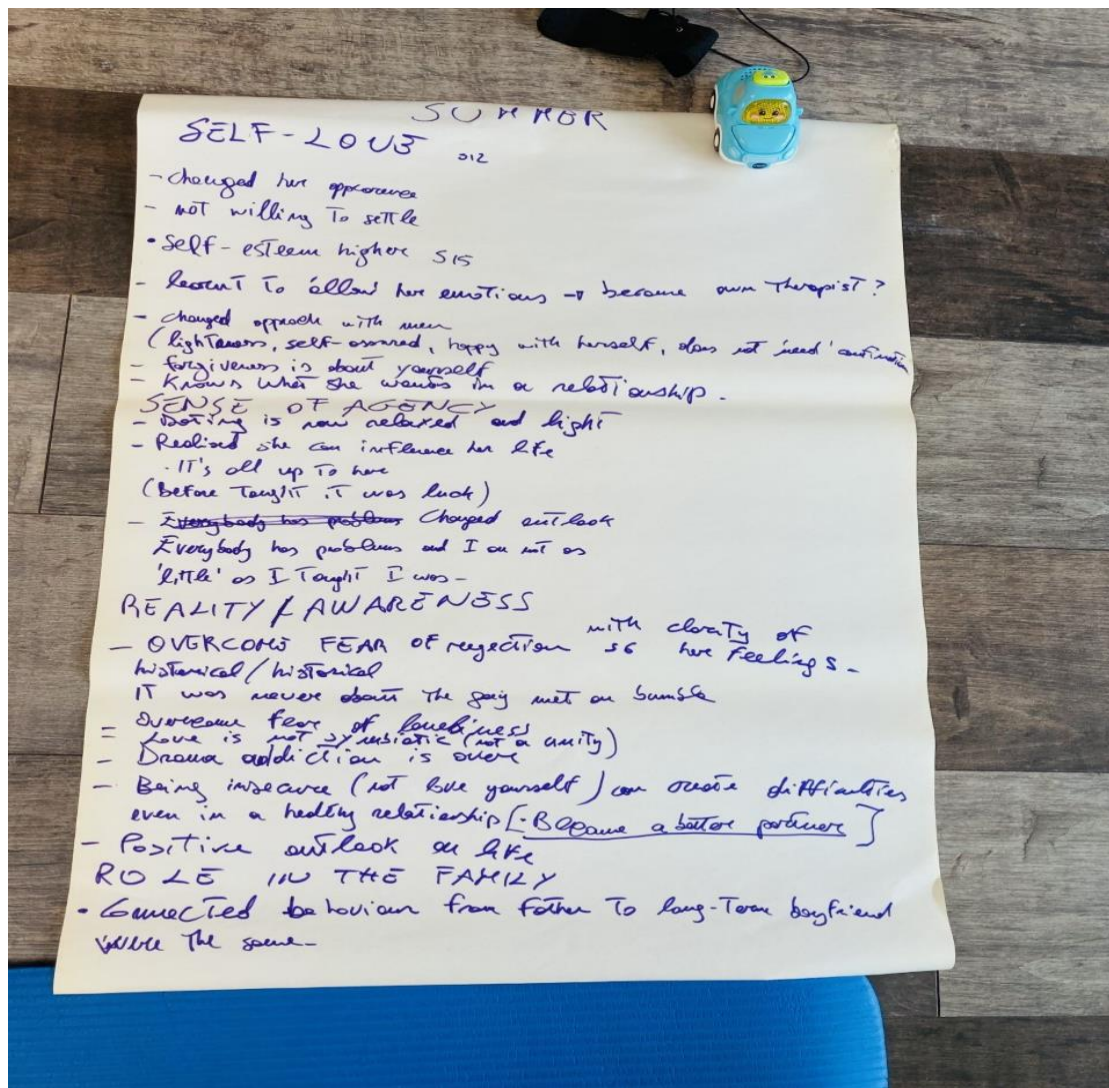 SUMMER
SELF-LOVE S12
- changed her appearance
- not willing to settle
• Self-esteem higher S15
- learnt to 'allow' her emotions → became own therapist?
- changed approach with men
(lightness, self-assured, happy with herself, does not need '
- forgiveness is about yourself
- Knows what she wants in a relationship.
SENSE OF AGENCY
- Dating is now relaxed and light
- Realised she can influence her life
. IT's all up to her
(Before Taught iT was luck)
- Everybody has problems Changed outlook
Everybody has problems and I am not as
'little' as I Taught I was -
REALITY / AWARENESS
- OVERCOME FEAR OF rejection S6 with clarity of her Feelings -
historical
IT was never about the guy met on bumble
- Overcame fear of loneliness
= Love is not symbiotic (not a unity)
- Drama addiction is over
- Being insecure (not love yourself) can create difficulties
even in a healthy relationship [- Became a better partner]
- Positive outlook on life
ROLE IN THE FAMILY
• Connected behaviour from father to long-Term boyfriend
were the same -